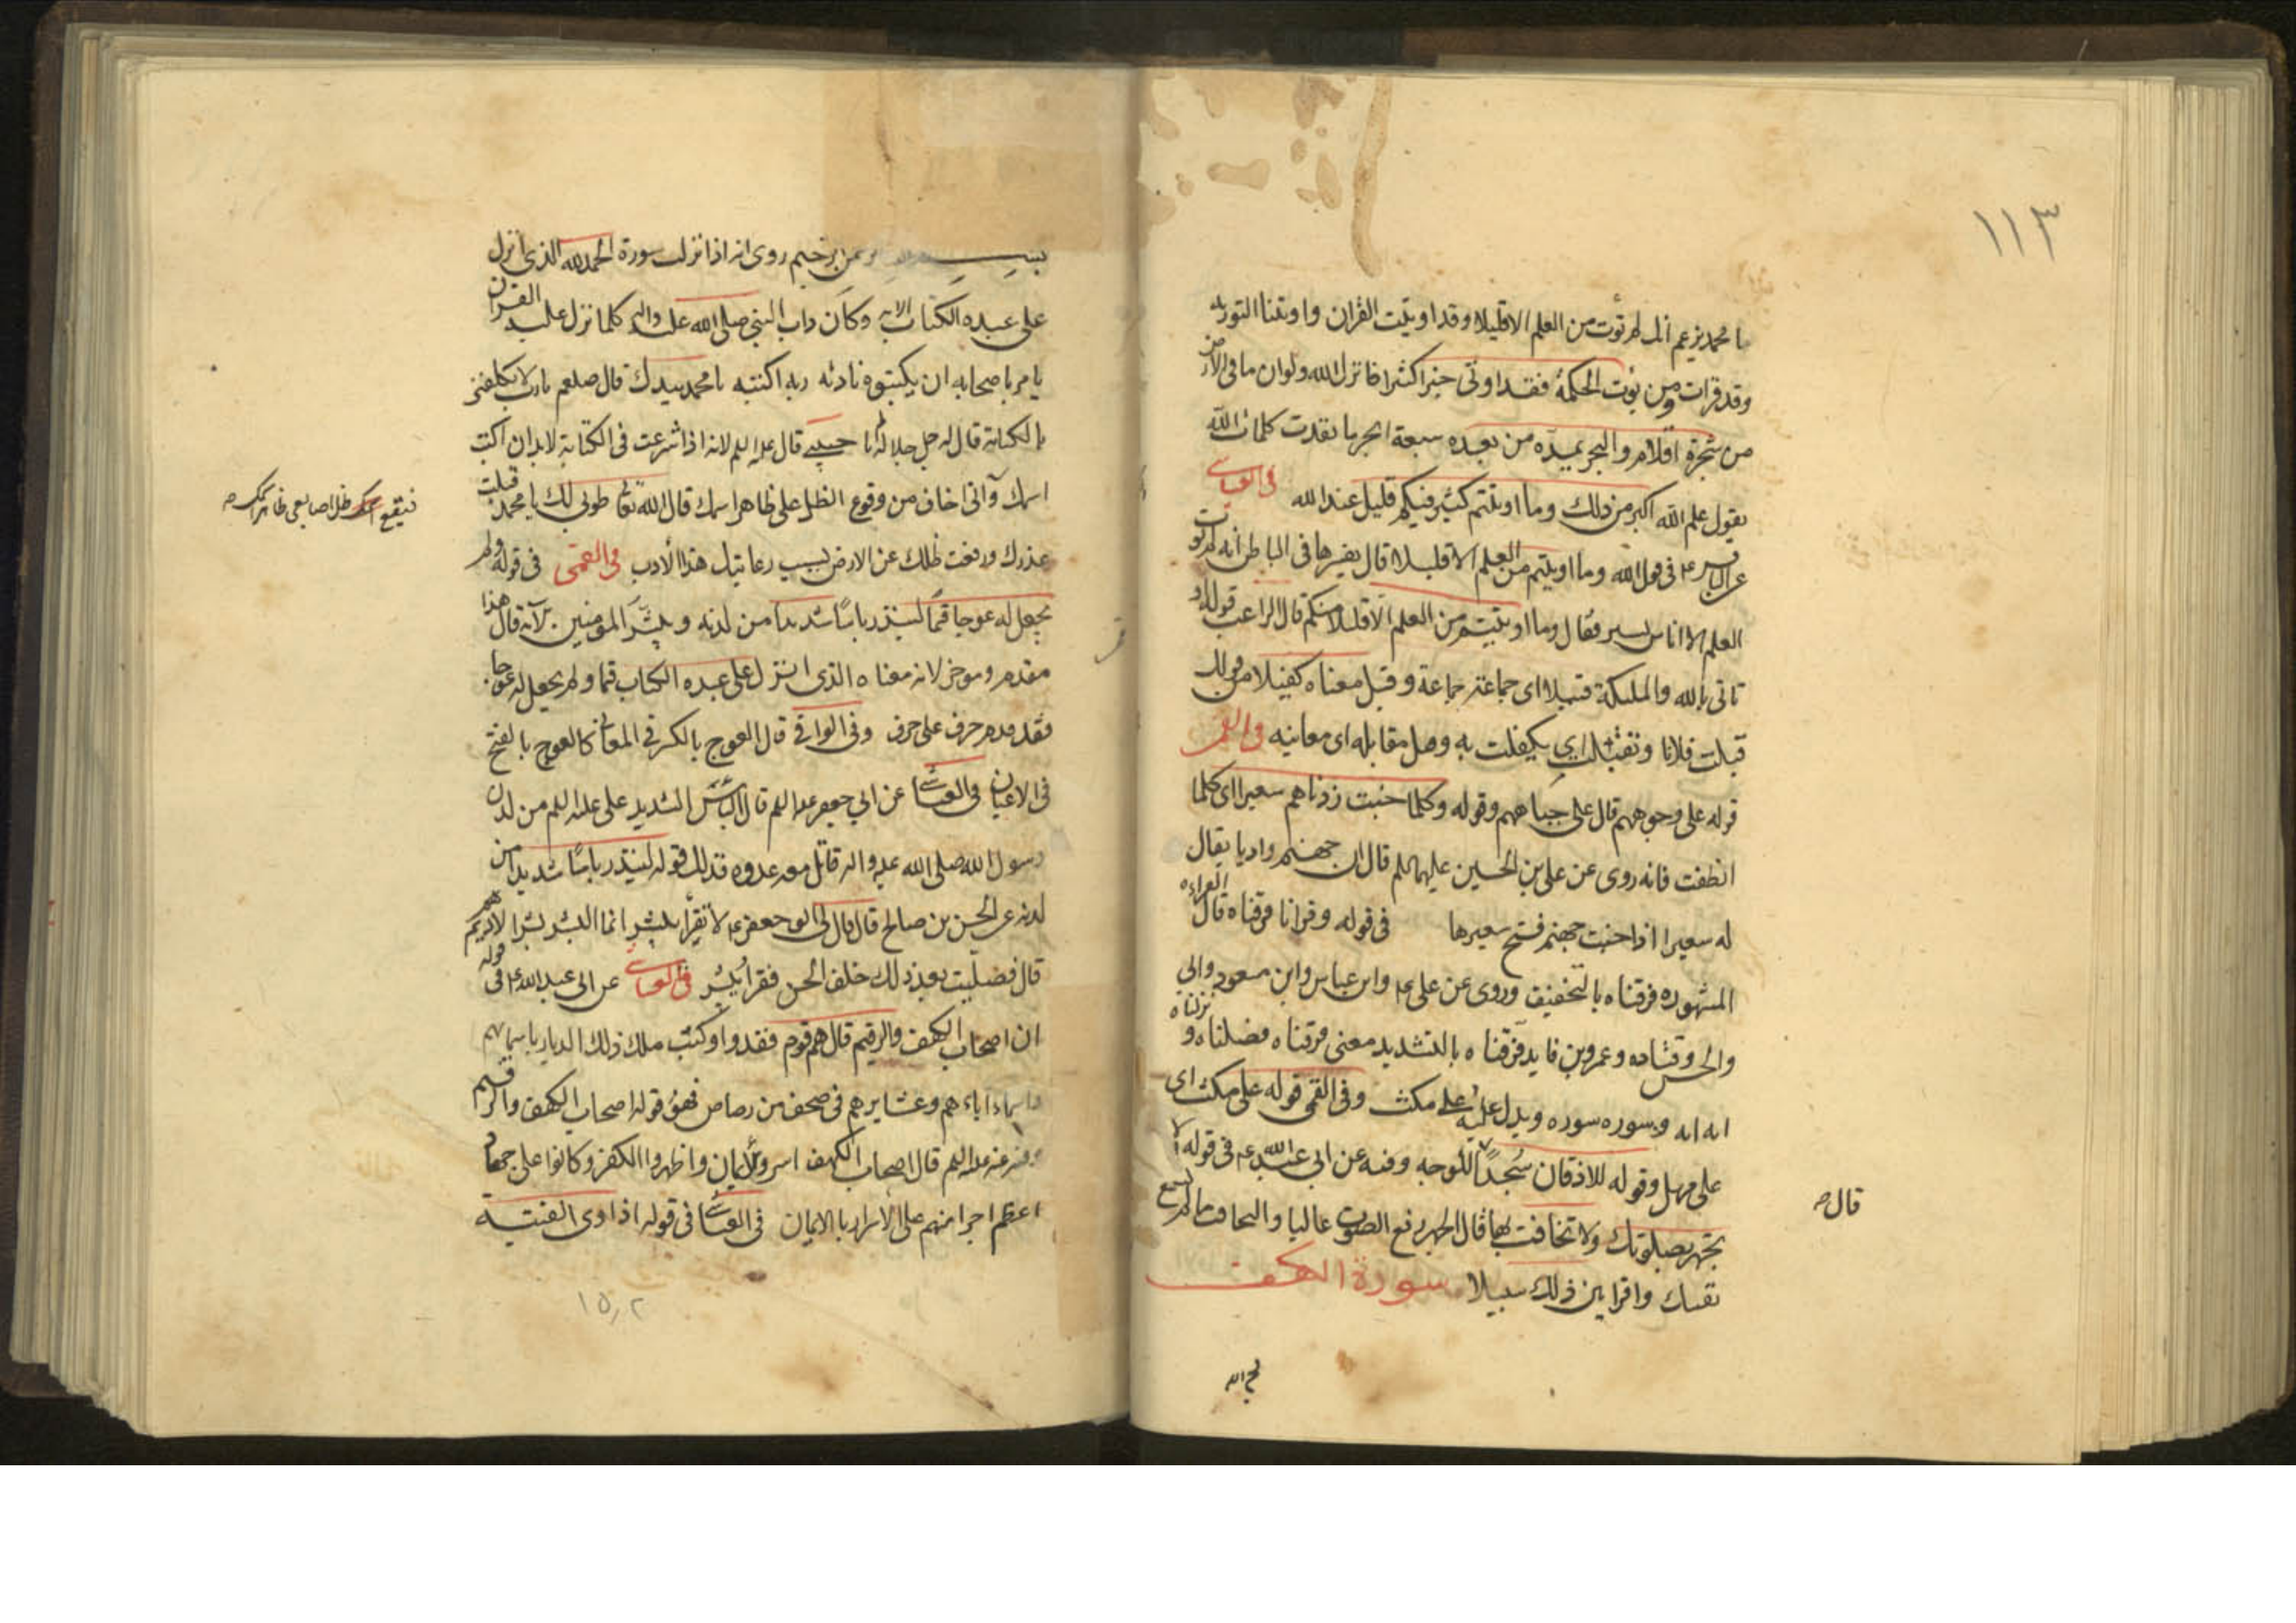 ١١٣
يا محمد يزعم انك لم تؤت من العلم الا قليلا وقد اوتيت القران واوتينا التورية
وقد قرات ومن يؤت الحكمة فقد اوتى خيرا كثيرا فانزل الله ولو ان ما فى الارض
من شجرة اقلام والبحر يمده من بعده سبعة ابحر ما نفدت كلمات الله
يقول علم الله اكبر من ذلك وما اوتيتم كثير فيكم قليل عند الله فى العياشى
عن الباقر ع فى قول الله وما اوتيتم من العلم الا قليلا قال تفسيرها فى الباطن انه لم يؤت
العلم الا اناس يسير فقال وما اوتيتم من العلم الا قليلا منكم قال الراغب قوله او
تاتى بالله والملئكة قبيلا اى جماعة جماعة وقيل معناه كفيلا من قولك
قبلت فلانا وتقبلت اى تكفلت به وقيل مقابلة اى معاينة فى القمى
قوله على وجوههم قال على جباههم وقوله وكلما خبت زدناهم سعيرا اى كلما
انطفت فانه روى عن على بن الحسين عليهما السلم قال ان جهنم واديا يقال
له سعيرا اذا خبت جهنم فتح سعيرها فى قوله وقرانا فرقناه قال القراءة
المشهورة فرقناه بالتخفيف وروى عن على ع وابن عباس وابن مسعود وابى
والحسن وقتاده وعمرو بن فايد فرقناه بالتشديد معنى فرقناه فصلناه و نزلناه
ايه ايه وسوره سوره ويدل عليه على مكث وفى القمى قوله على مكث اى
على مهل وقوله للاذقان سجدا للوجه وفيه عن ابى عبد الله ع فى قوله لا
تجهر بصلوتك ولا تخافت بها قال الجهر رفع الصوت عاليا والتخافت ما لم تسمع
قال
نفسك واقرا بين ذلك سبيلا سورة الكهف
بسم الله الرحمن الرحيم روى انه اذا نزلت سورة الحمد لله الذى انزل
على عبده الكتاب الاية وكان داب النبى صلى الله عليه واله كلما نزل عليه القران
يامر باصحابه ان يكتبوه نادئه ربه اكتبه يا محمد بيدك قال صلعم يا رب لا تكلفنى
بالكتابة قال له جل جلاله لم يا حبيبى قال عليه السلم لانه اذا شرعت فى الكتابة لا بد ان اكتب
اسمك وانى اخاف من وقوع الظل على ظاهر اسمك قال الله تعالى طوبى لك يا محمد قبلت
فيقع ظل اصابعى ظاهر اسمك
عذرك ورفعت ظلك عن الارض بسبب رعايتك هذا الادب فى القمى فى قوله ولم
يجعل له عوجا قيما لينذر باسا شديدا من لدنه ويبشر المؤمنين الاية قال هذا
مقدم وموخر لانه معناه الذى انزل على عبده الكتاب قيما ولم يجعل له عوجا
فقد قدم حرف على حرف وفى الوافى قال العوج بالكسر فى المعانى كالعوج بالفتح
فى الاعيان فى العياشى عن ابى جعفر عليه السلم قال الباس الشديد على عليه السلم من لدن
رسول الله صلى الله عليه واله قاتل معه عدوه فذلك قوله لينذر باسا شديدا من
لدنه عن الحسن بن صالح قال قال لى ابو جعفر ع لا تقرأ يبشر انما البشر بشر الاديم
قال فصليت بعد ذلك خلف الحسن فقرأ يبشر فى العياشى عن ابى عبد الله ع فى قوله
ان اصحاب الكهف والرقيم قال هم قوم فقدوا وكتب ملك ذلك الديار باسمائهم
واسماء اباءهم وعشايرهم فى صحف من رصاص فهو قوله اصحاب الكهف والرقيم
وفيه عنه عليه السلم قال اصحاب الكهف اسروا الايمان واظهروا الكفر وكانوا على جهار
اعظم اجرا منهم على الاسرار بالايمان فى العياشى فى قوله اذ اوى الفتية
١٥٫٢